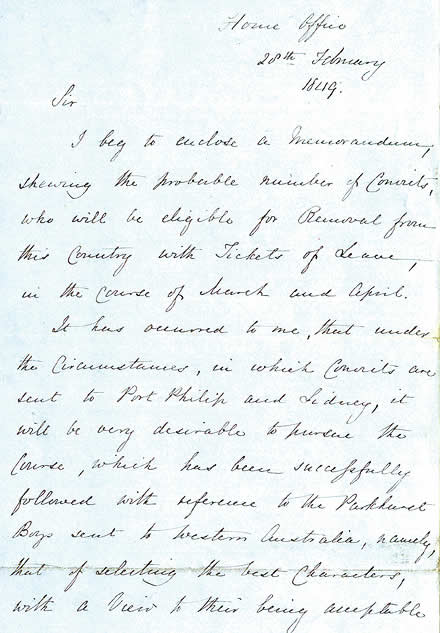 Home Office
28th February
1849.
Sir
I beg to enclose a Memorandum,
shewing the probable number of Convicts,
who will be eligible for Removal from
this Country with Tickets of Leave,
in the course of March and April.
It has occurred to me, that under
the Circumstances, in which Convicts are
sent to Port Philip and Sidney, it
will be very desirable to pursue the
Course, which has been successfully
followed with reference to the Parkhurst
Boys sent to Western Australia, namely,
that of selecting the best Characters,
with a View to their being acceptable